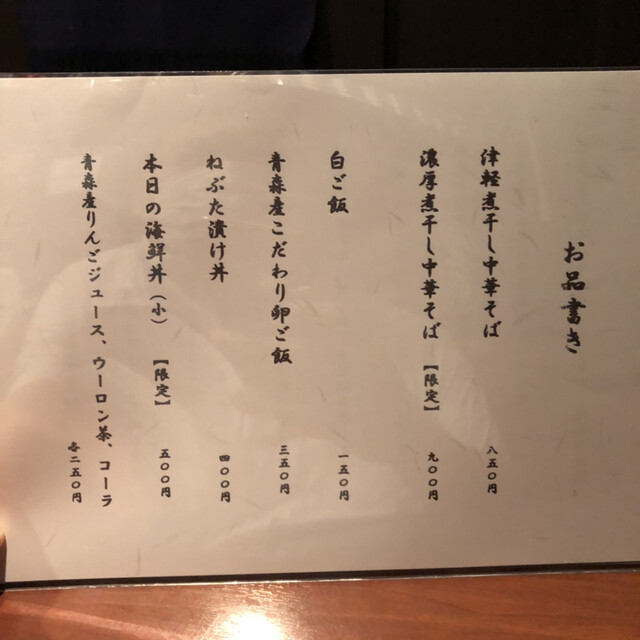 お品書き
津軽煮干し中華そば 八五〇円
濃厚煮干し中華そば【限定】 九〇〇円
白ご飯 一五〇円
青森産こだわり卵ご飯 三五〇円
ねぶた漬け丼 四〇〇円
本日の海鮮丼（小）【限定】 五〇〇円
青森産りんごジュース、ウーロン茶、コーラ
各二五〇円